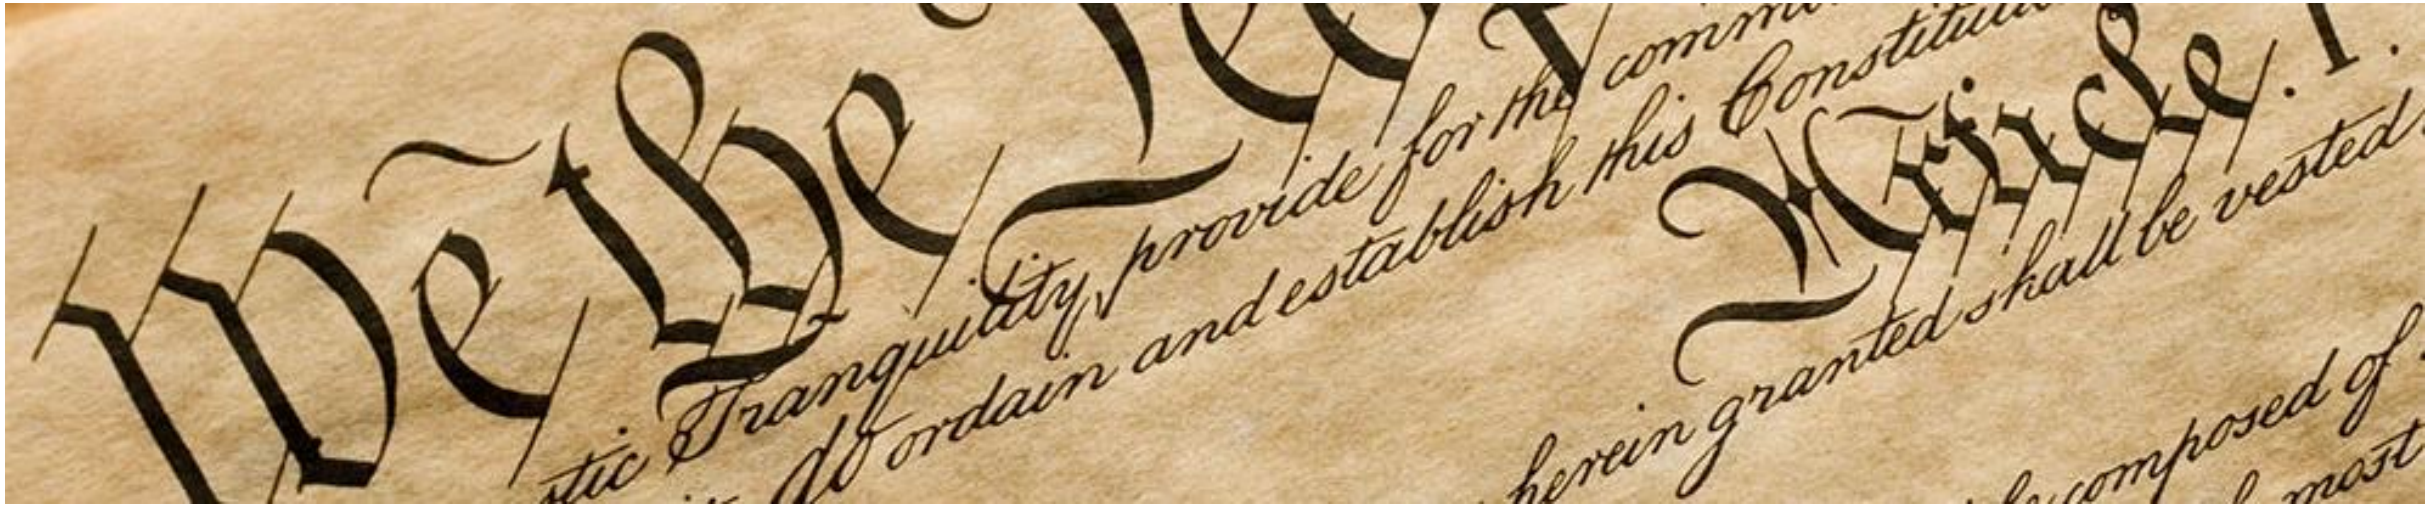 We the Peop
Tranquility, provide for the comm
do ordain and establish this Constituti
Article. I.
herein granted shall be vested
composed of
most